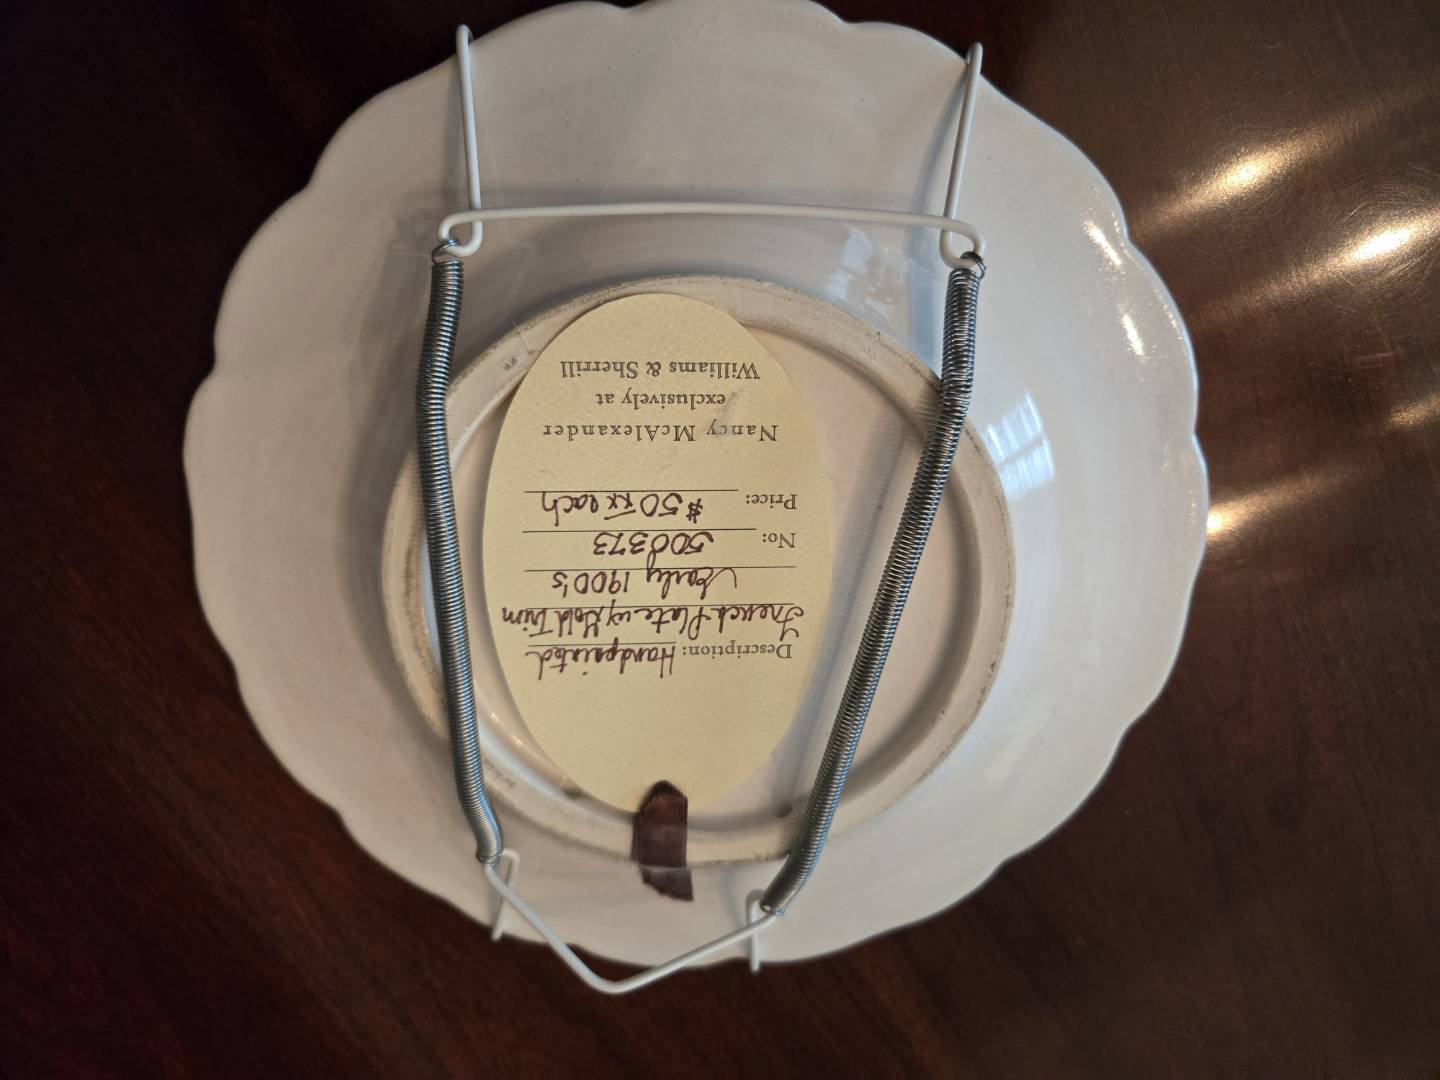 Description: Handpainted
French Plate w/Gold Trim
Early 1900's
No: 500373
Price: $50 xx each
Nancy McAlexander
exclusively at
Williams & Sherrill